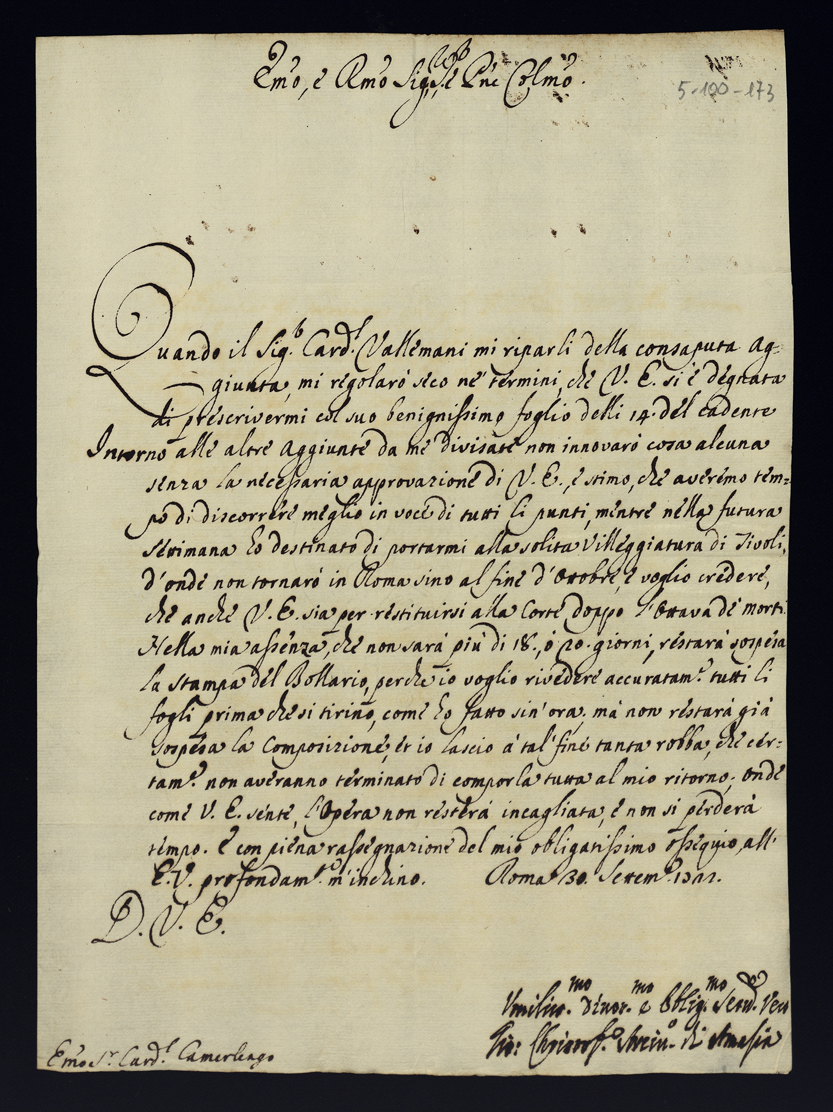 Em̃o, e Rm̃o Sig.re Sig.re e Pñe Colm̃o.
5-120-173
Quando il Sig.r Card.l Vallemani mi riparli della consaputa Ag=
giunta, mi regolarò seco ne' termini, che V. E. si è degnata
di prescrivermi col suo benignissimo foglio delli 14. del cadente
Intorno alle altre Aggiunte da me divisate non innovarò cosa alcuna
senza la necessaria approvazione di V. E., e stimo, che averemo tem=
po di discorrere meglio in voce di tutti li punti, mentre nella futura
settimana ho destinato di portarmi alla solita Villeggiatura di Tivoli,
d'onde non tornarò in Roma sino al fine d'Ottobre, e voglio credere,
che anche V. E. sia per restituirsi alla Corte doppo l'Ottava de' morti.
Nella mia assenza, che non sarà più di 18., ò 20. giorni, restarà sospesa
la stampa del Bollario, perche io voglio rivedere accuratam.e tutti li
fogli prima che si tirino, come ho fatto sin' ora; mà non restarà già
sospesa la Composizione, et io lascio à tal' fine tanta robba, che cer=
tam.e non averanno terminato di comporla tutta al mio ritorno; onde
come V. E. sente, l'Opera non resterà incagliata, e non si perderà
tempo. E con piena rassegnazione del mio obligatissimo ossequio, all'
E. V. profondam.te m'inchino. Roma 30. Settem.e
D. V. E.
Umiliss.mo Divot.mo e Oblig.mo Serv.
Gio: Christof.o Arciv.o di Amasia
Em̃o S.r Card.l Camerlengo